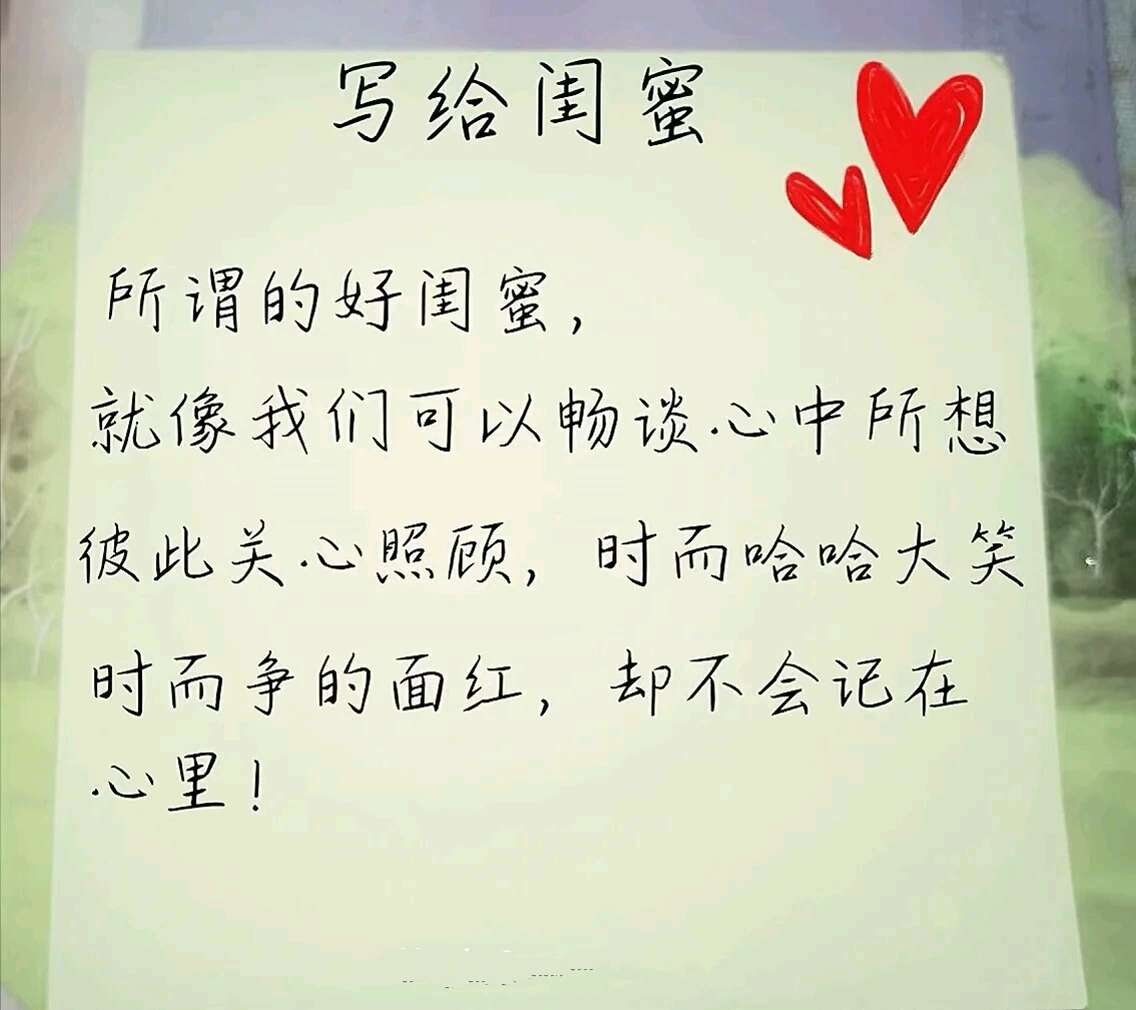 写给闺蜜
所谓的好闺蜜,
就像我们可以畅谈心中所想
彼此关心照顾, 时而哈哈大笑
时而争的面红, 却不会记在
心里!